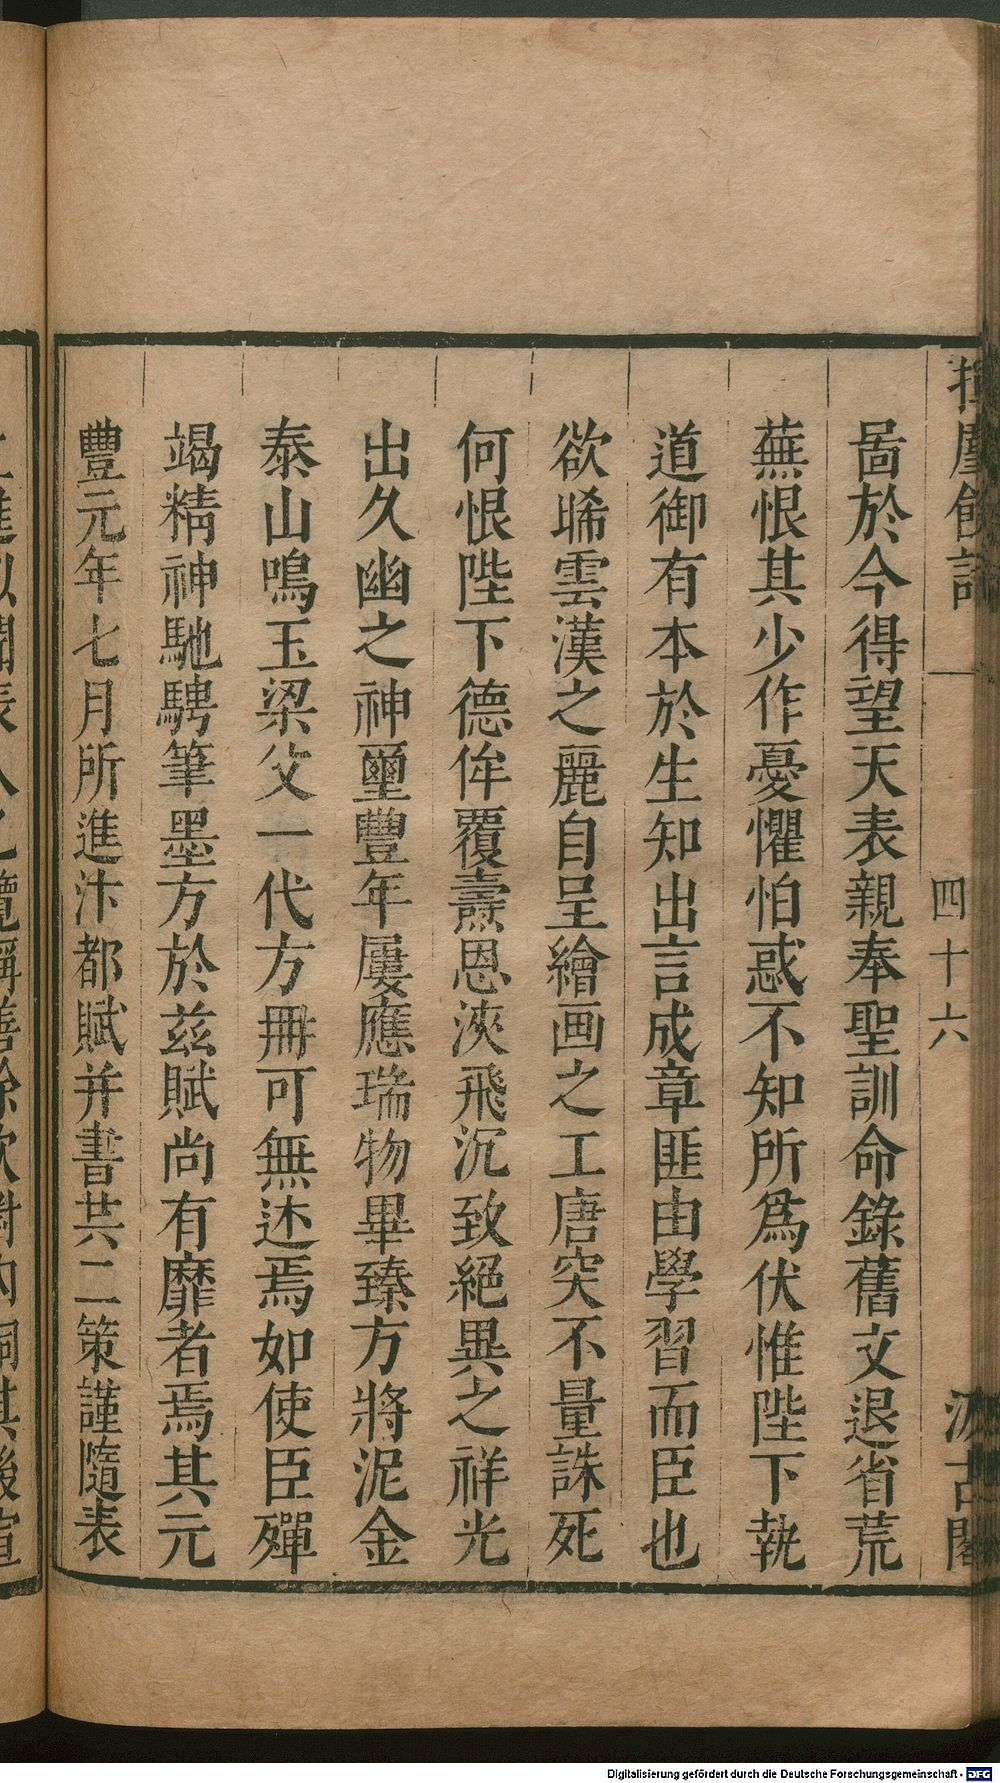 揮麈餘話
四十六
汲古閣
啚於今得望天表親奉聖訓命錄舊文退省荒
蕪恨其少作憂懼怕惑不知所爲伏惟陛下執
道御有本於生知出言成章匪由學習而臣也
欲晞雲漢之麗自呈繪画之工唐突不量誅死
何恨陛下德侔覆燾恩浹飛沉致絕異之祥光
出久幽之神璽豐年屢應瑞物畢臻方將泥金
泰山鳴玉梁父一代方冊可無述焉如使臣殫
竭精神馳騁筆墨方於兹賦尚有靡者焉其元
豐元年七月所進汴都賦并書共二策謹隨表
Digitalisierung gefördert durch die Deutsche Forschungsgemeinschaft - DFG